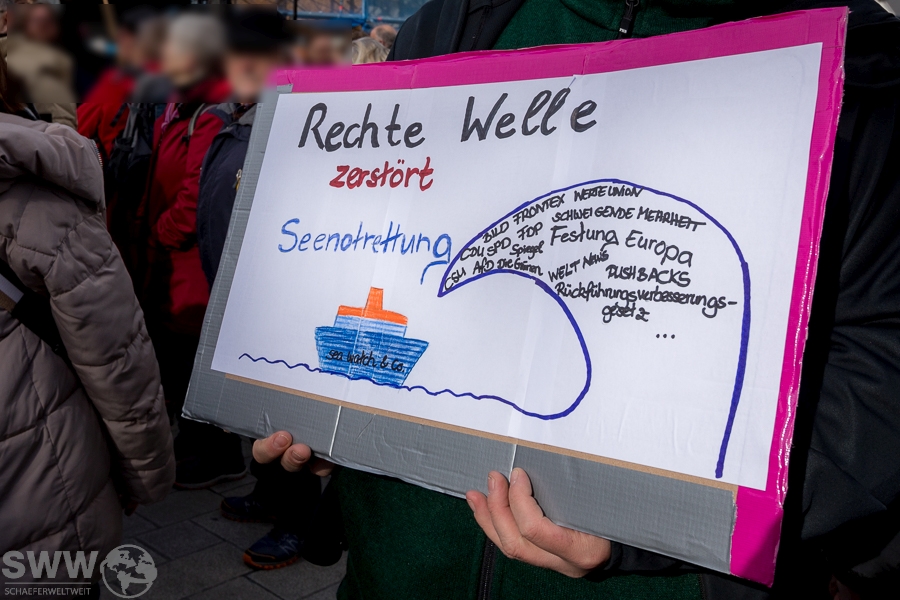 Rechte Welle
zerstört
Seenotrettung
BILD FRONTEX WERTEUNION
CDU SPD FDP SCHWEIGENDE MEHRHEIT
CSU AfD Spiegel Festung Europa
Die Grünen WELT News PUSHBACKS
Rückführungsverbesserungs-
gesetz
...
sea watch & Co.
SWW
SCHAEFERWELTWEIT